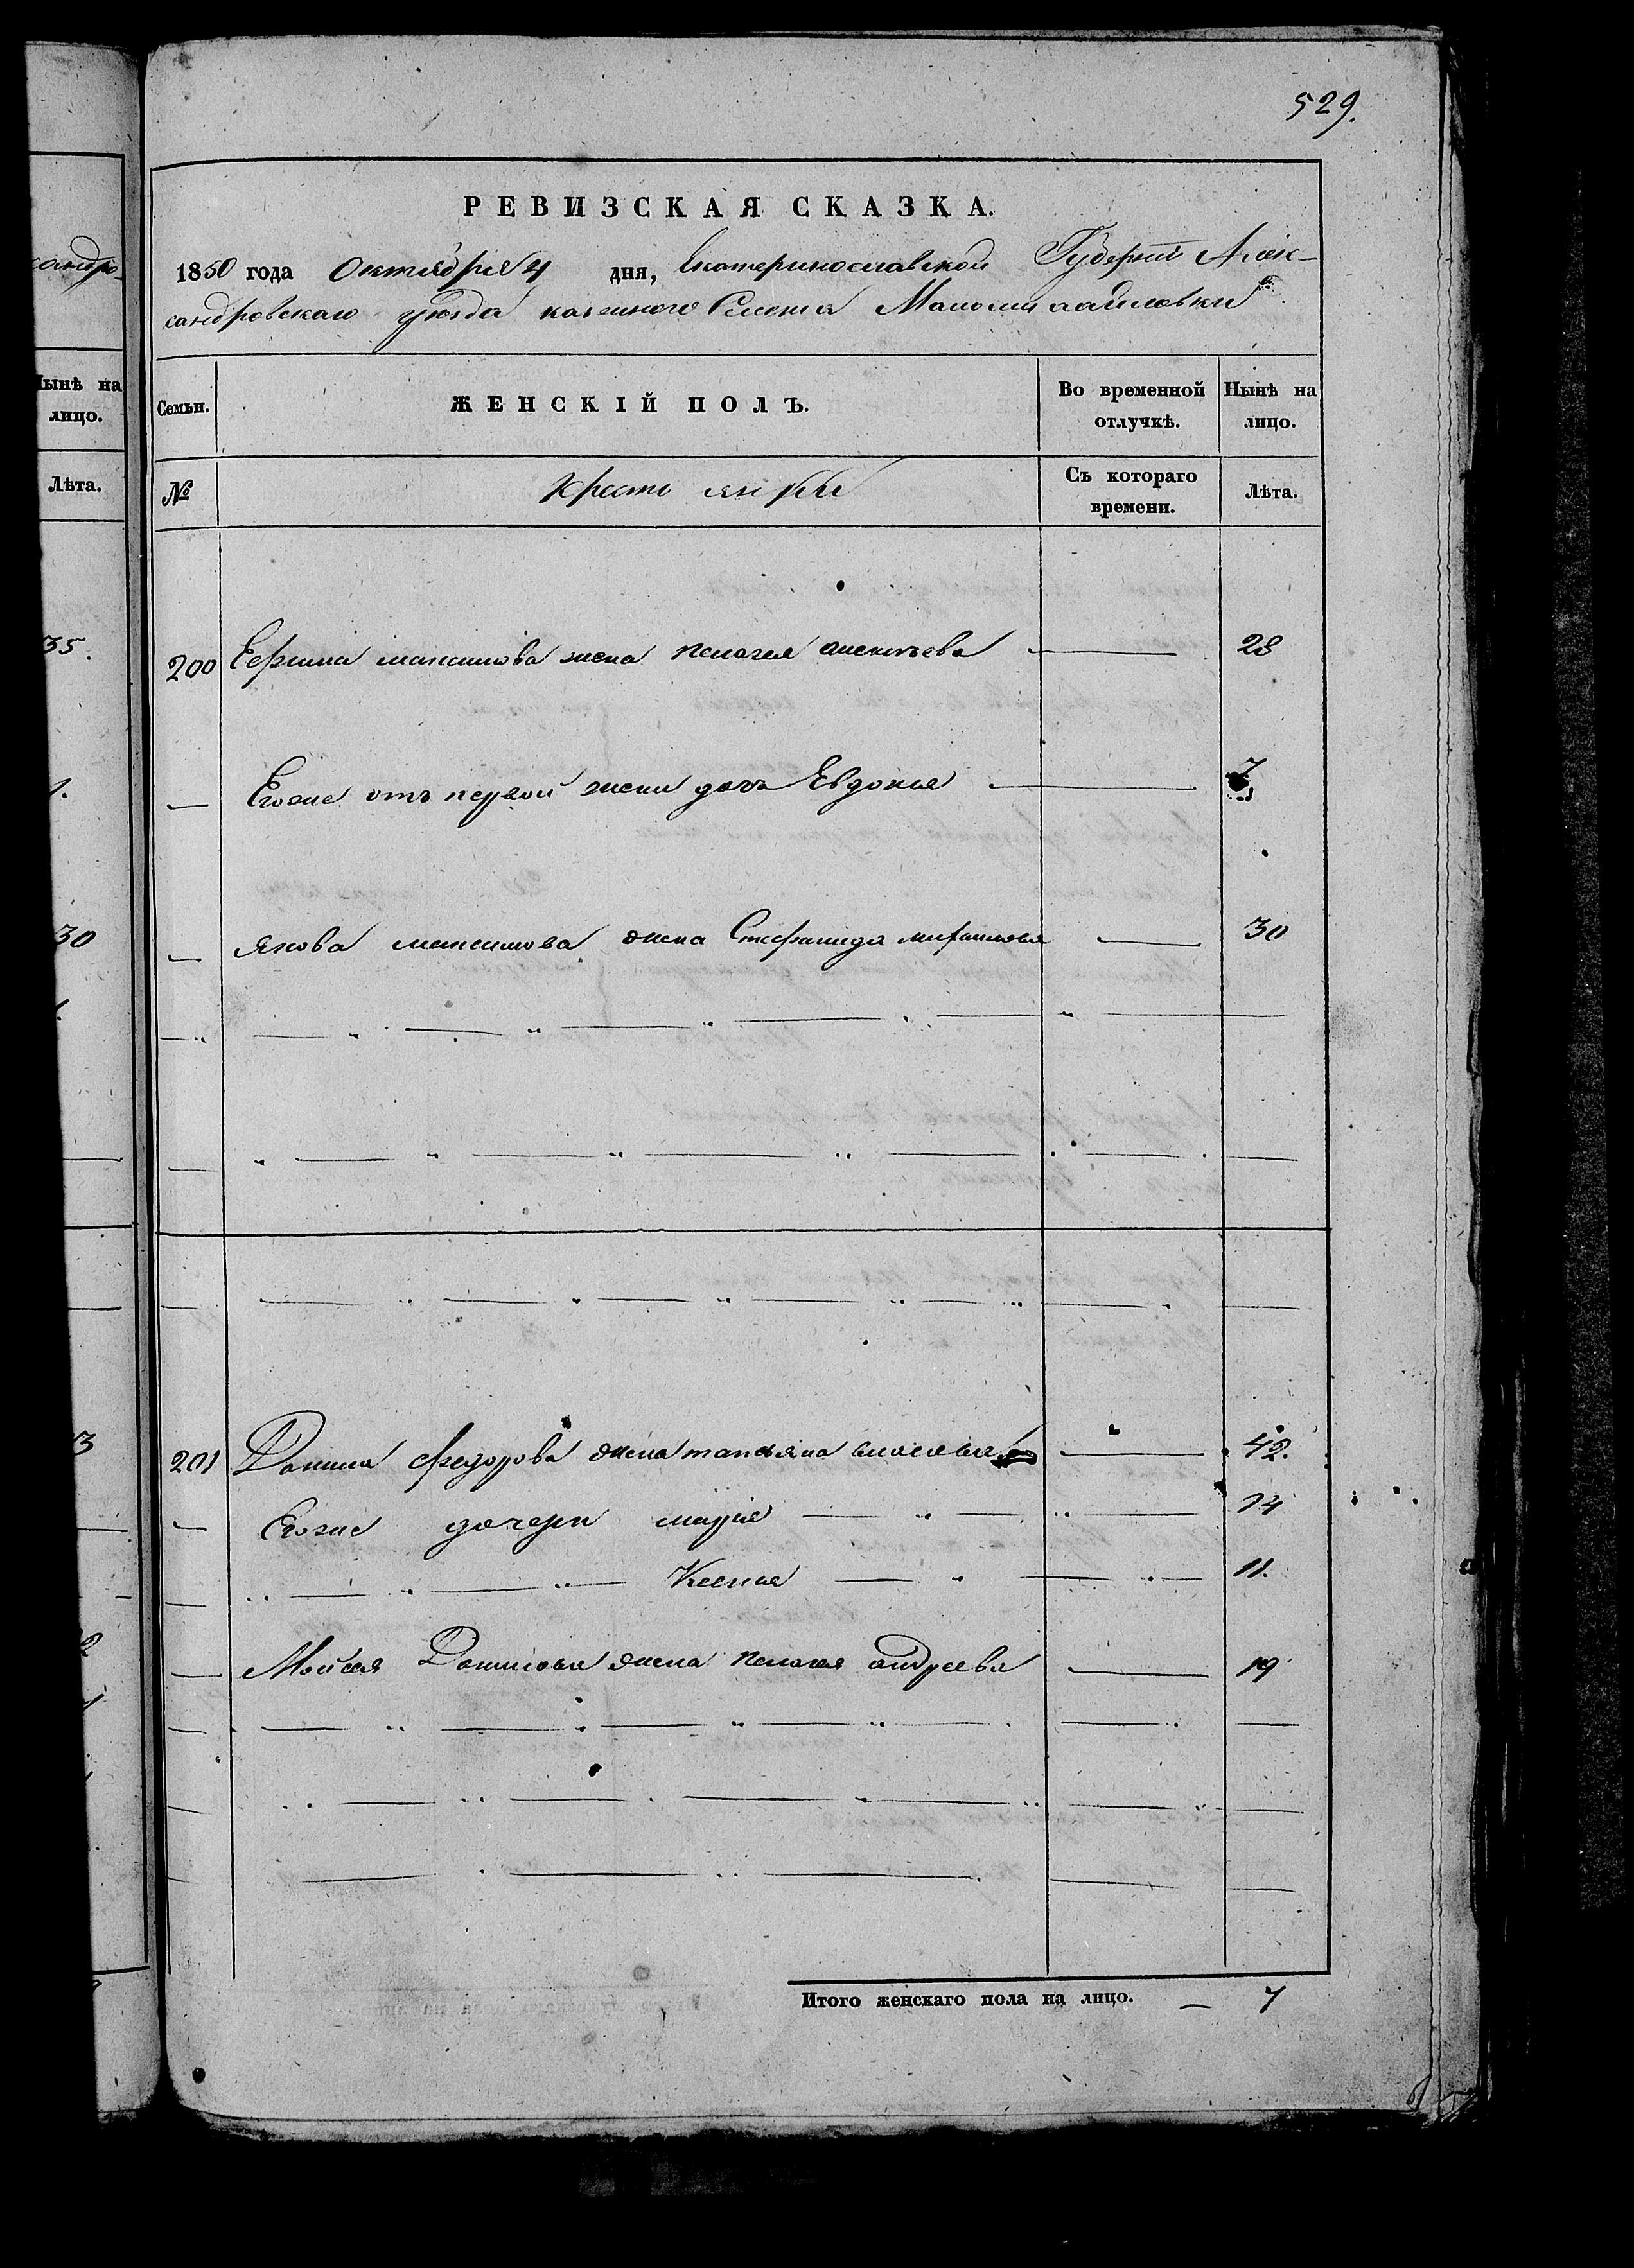 529.
РЕВИЗСКАЯ СКАЗКА.
1850 года Октября 4 дня, Екатеринославской Губерніи Алек-
сандровскаго уѣзда казенного Селенія Маломихайловки
Нынѣ на лицо.
Лѣта.
Семьи.
ЖЕНСКІЙ ПОЛЪ.
Во временной отлучкѣ.
Нынѣ на лицо.
№
Крестьянъ
Съ котораго времени.
Лѣта.
35.
200 Ефима максимова жена пелагея алексѣева — 28
1.
— Егоже отъ первой жени дочь Евдокия — 7
30
— якова максимова жена Стефанида михаилова — 30
3
201 Данила федорова жена татьяна власова — 42.
— Егоже дочери марія — 14
— Ксения — 11.
— Мойсея Данилова жена пелагея андреева — 19
Итого женскаго пола на лицо. — 7